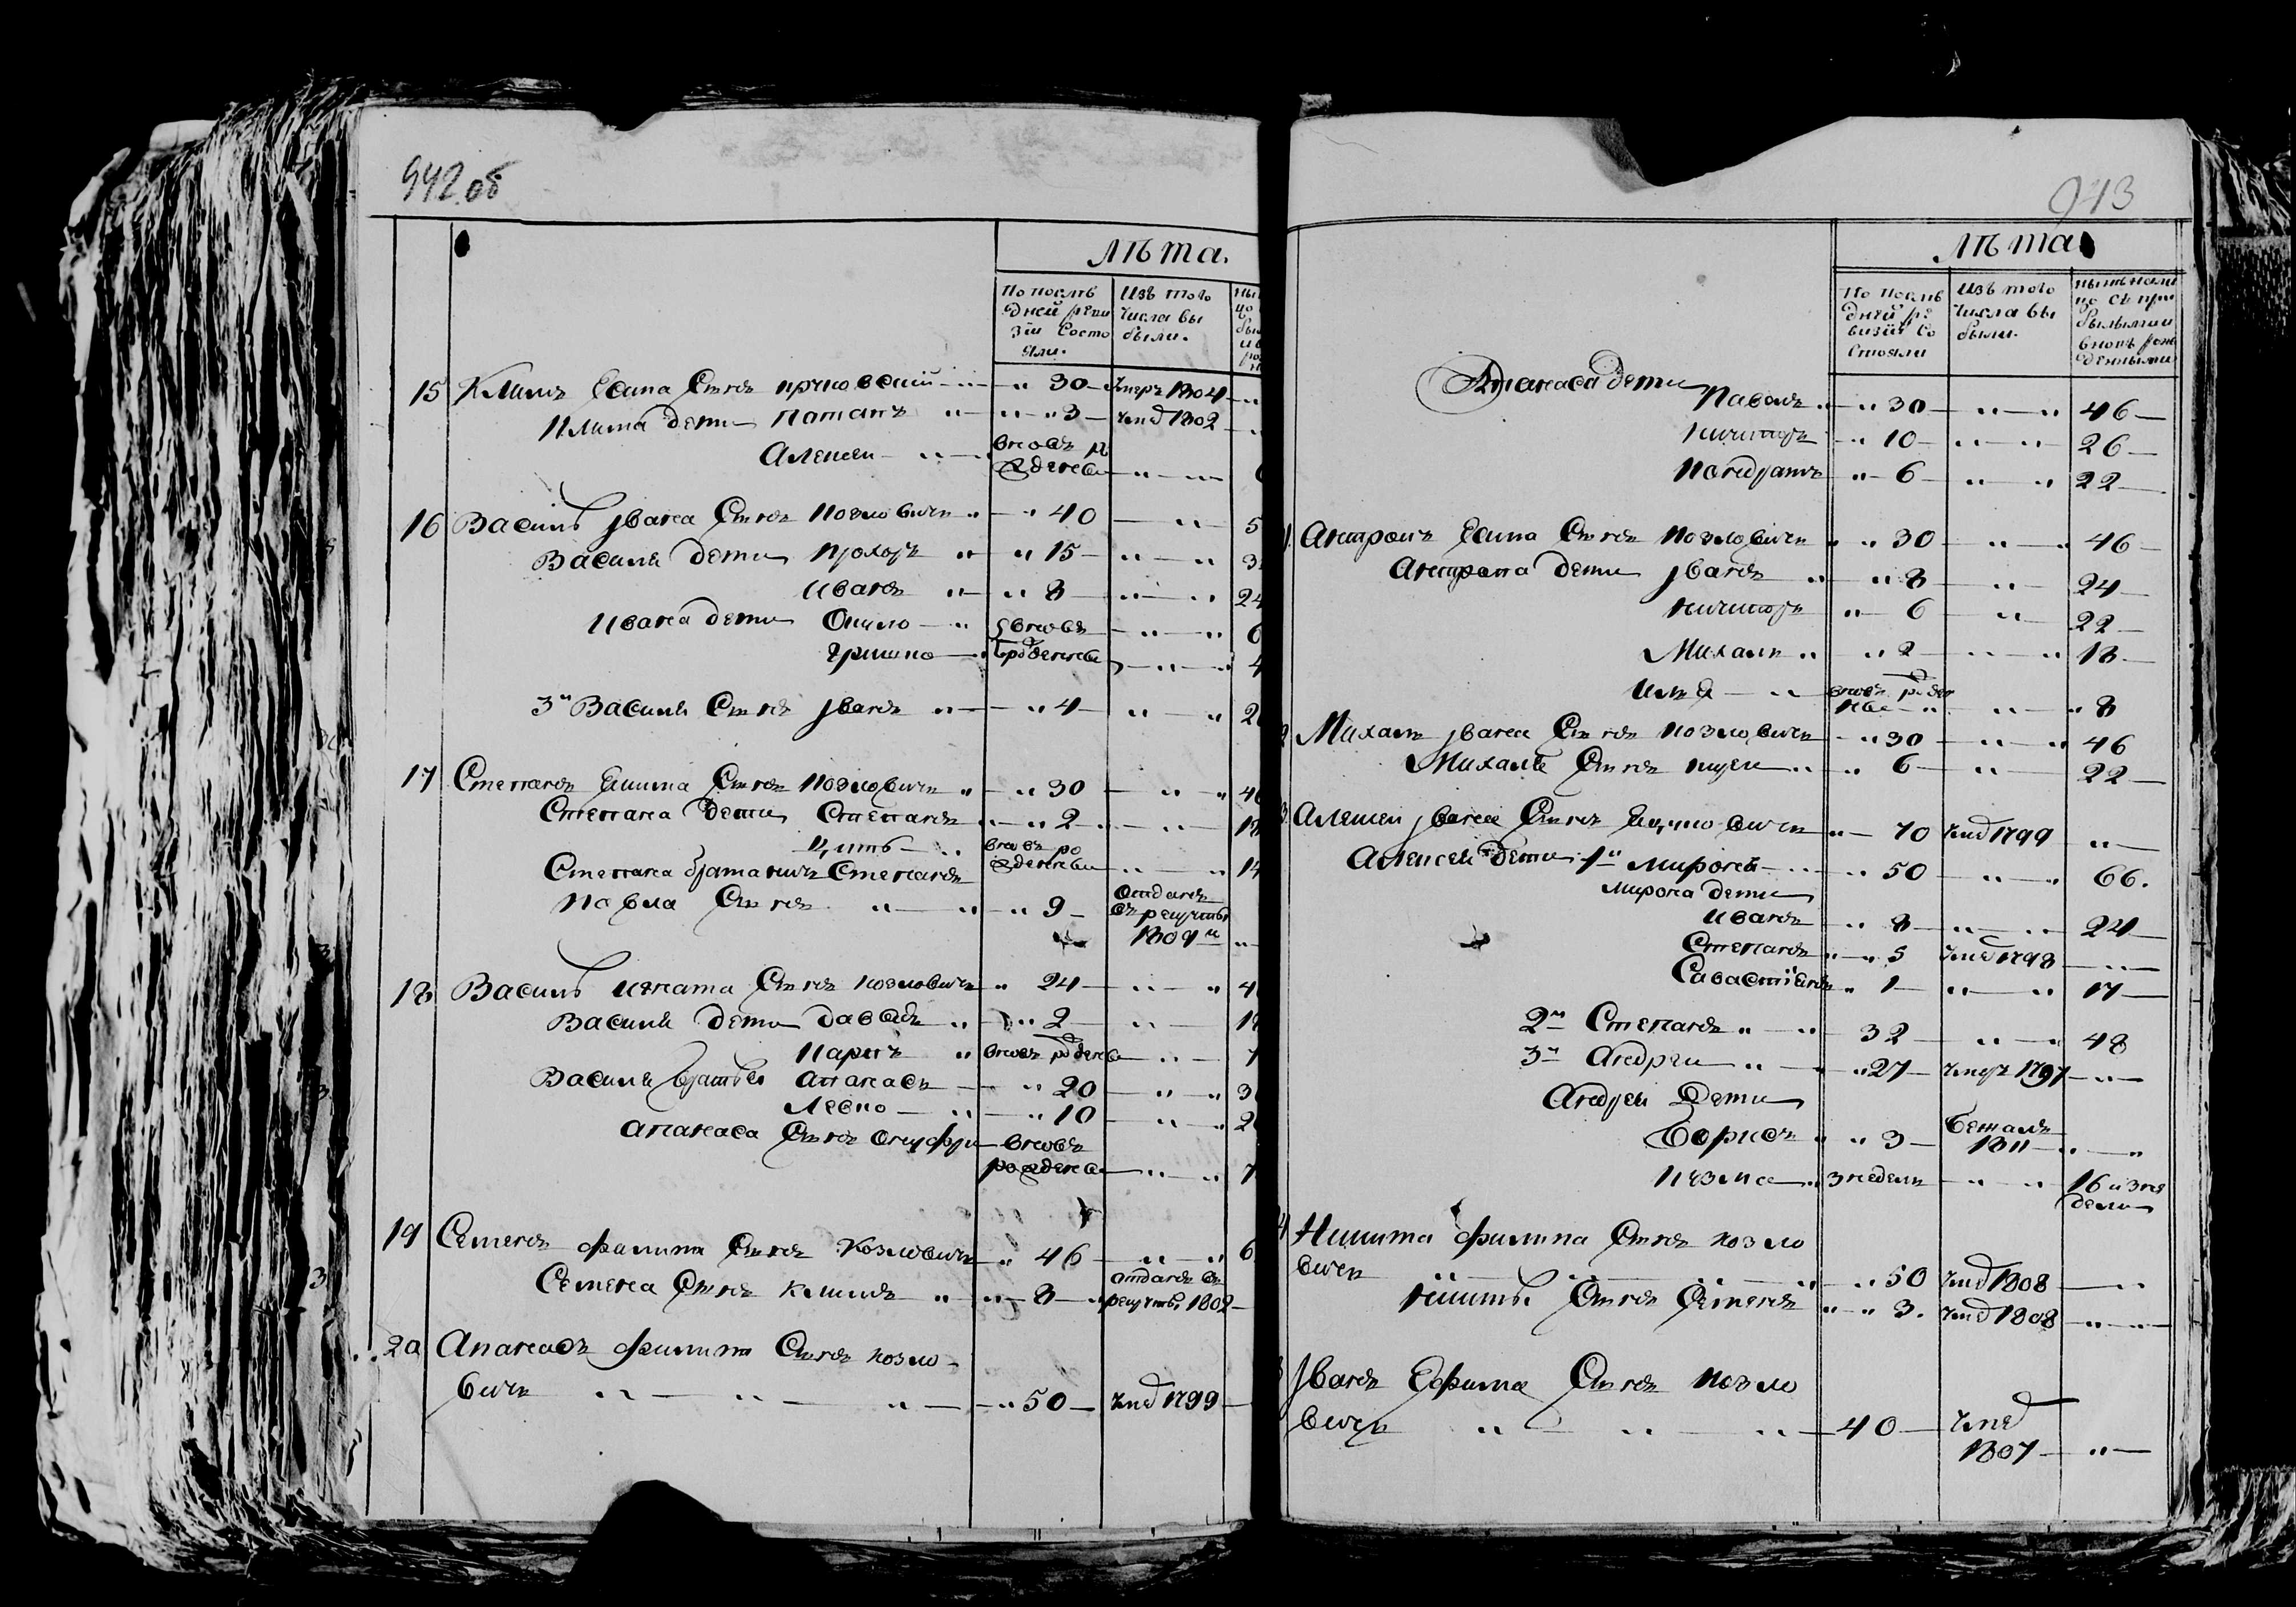 942 об
лѣта.
По послѣ
дней реви
зіи состо
яли.
Изъ того
числа вы
были.
15 Климъ Есипа Сынъ " 30 — умеръ 1804 — "
Клима дети Потапъ " — " 3 — умѣ 1802 —
Алексеи — " вновь ро
жденны — " —
16 Василь Iвана Сынъ Козловичъ " — " 40 — " — 5
Василя дети Прохоръ " — " 15 — " — " 3
Иванъ " — " 8 — " — " 24
Ивана дети — " вновь — " — " 6
Гришко — " рожденны — " — " 4
3й Василя Сынъ Iванъ " — " 4 — " — " 2
17 Степанъ Сынъ Козловичъ " — " 30 — " — " 46
Степана дети Степанъ " — " 2 — " — 18
вновь ро
жденны — " — " 14
Степана братаничъ Степанъ
Павла Сынъ " — " — " 9 — отданъ
въ рекруты
1809 — "
18 Василь Игната Сынъ Козловичъ " 24 — " — " 4
Василя дети Давыдъ " — " 2 — " — 18
Карпъ " вновь рожденны — " — 7
Василя братья Апанасъ — " 20 — " — " 3
Левко — " — " 10 — " — " 2
Апанаса Сынъ — вновь
рожденны — " — " 7
19 Семенъ Филипа Сынъ Козловичъ — " 46 — " — " 6
Семена Сынъ Климъ " — " — 8 — " отданъ въ
рекруты 1802 —
20 Апанасъ Филипа Сынъ Козло-
вичъ " — " — " — — " 50 — умѣ 1799 —
943
лѣта
По послѣ
дней ре
визіи со
стояли
Изъ того
числа вы
были.
нынѣ нали
цо съ при
былыми и
вновь рож
денными
Апанаса дети
Павелъ " — " 30 — " — " 46 —
Кондратъ " — 6 — " — " 22 —
Антонъ Есипа Сынъ Козловичъ " " 30 — " — " 46 —
Антона дети Iванъ " — " 8 — " — 24 —
" — 6 — " — 22 —
Михаилъ " — " 2 — " — " 18 —
Илья — " вновь рожден
ны — " — " — " 8
Михаилъ Iвана Сынъ Козловичъ — " 30 — " — " 46
Михаила Сынъ " — " 6 — " — 22 —
Алексеи Iвана Сынъ " — 70 умѣ 1799 — " —
Алексея дети 1й Миронъ — " — " 50 — " — " 66.
Мирона дети
Иванъ — " 8 — " — " 24 —
Степанъ " — " 5 умѣ 1798 — " —
Савастіянъ " 1 — " — " 17 —
2й Степанъ " — " 32 — " — " 48
3й Андреи — " — " 27 — умеръ 1797 — " —
Андрея Дети
Борисъ " — " 3 — бежалъ
1811 — " — "
Кузма — " 3 недели — " — " 16 и 3 не
дели
Никита Филипа Сынъ Козло
вичъ " — " — " — " " 50 умѣ 1808 — "
Никиты Сынъ Семенъ " — " 3. умѣ 1808 — " —
Iванъ Ефима Сынъ Козло
вичъ " — " — " — 40 — умѣ
1807 — " —